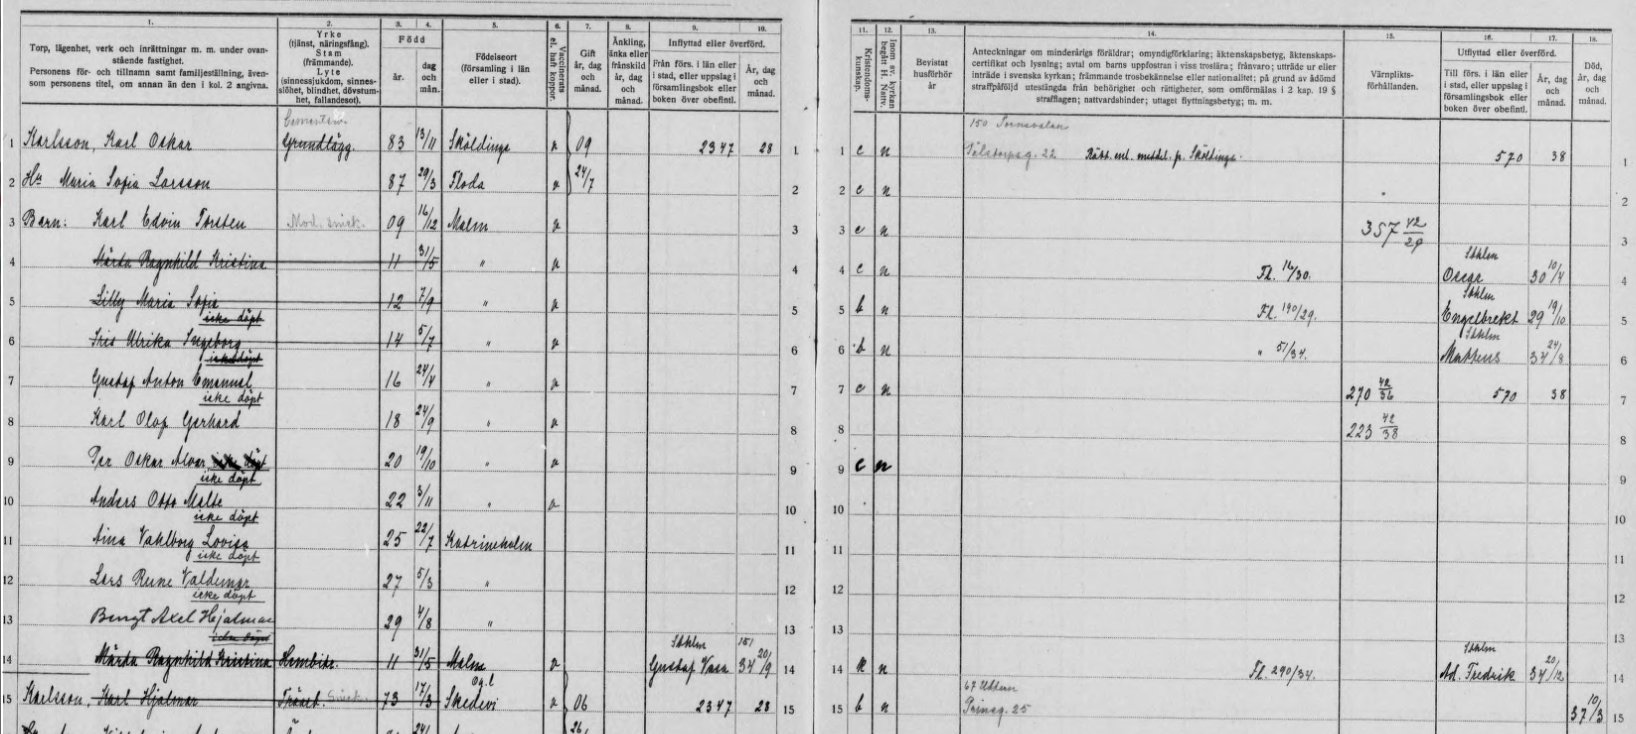 1. 2. 3. 4. 5. 6. 7. 8. 9. 10.
Torp, lägenhet, verk och inrättningar m. m. under ovan-
stående fastighet.
Personens för- och tillnamn samt familjeställning, även-
som personens titel, om annan än den i kol. 2 angivna.
Yrke
(tjänst, näringsfång).
Stam
(främmande).
Lyte
(sinnessjukdom, sinnes-
slöhet, blindhet, dövstum-
het, fallandesot).
Född
år.
dag
och
mån.
Födelseort
(församling i län
eller i stad).
Vaccinerats
el. haft koppor.
Gift
år, dag
och
månad.
Änkling,
änka eller
frånskild
år, dag
och
månad.
Inflyttad eller överförd.
Från förs. i län eller
i stad, eller uppslag i
församlingsbok eller
boken över obefintl.
År, dag
och
månad.
11. 12. 13. 14. 15. 16. 17. 18.
Kristendoms-
kunskap.
Inom sv. kyrkan
begått H. Nattv.
Bevistat
husförhör
år
Anteckningar om minderårigs föräldrar; omyndigförklaring; äktenskapsbetyg, äktenskaps-
certifikat och lysning; avtal om barns uppfostran i viss troslära; frånvaro; utträde ur eller
inträde i svenska kyrkan; främmande trosbekännelse eller nationalitet; på grund av ådömd
straffpåföljd utestängda från behörighet och rättigheter, som omförmälas i 2 kap. 19 §
strafflagen; nattvardshinder; uttaget flyttningsbetyg; m. m.
Värnplikts-
förhållanden.
Utflyttad eller överförd.
Till förs. i län eller
i stad, eller uppslag i
församlingsbok eller
boken över obefintl.
År, dag
och
månad.
Död,
år, dag
och
månad.
150
1 Karlsson, Karl Oskar Grundlägg. 83 13/11 Sköldinge v 09 2347 28 1 1 c n 22 Rätt. enl. meddel. fr. Sköldinge. 570 38 1
2 Hu Maria Sofia Larsson 87 29/3 Floda v 24/7 2 2 c n 2
3 Barn: Karl Edvin Torsten Mod. snick. 09 16/12 Malm v 3 3 c n 357 42/29 3
Sthlm
4 Märta Ragnhild Kristina 11 31/5 " v 4 4 c n Fl. 16/30. Oscar 30 10/4 4
Sthlm
5 Lilly Maria Sofia 12 7/9 " v 5 5 b n Fl. 190/29. Engelbrekt 29 19/10 5
icke döpt
Sthlm
6 Iris Ulrika Ingeborg 14 5/7 " v 6 6 b n " 51/34. Matteus 34 24/8 6
icke döpt
7 Gustaf Anton Emanuel 16 24/4 " v 7 7 c n 270 42/36 570 38 7
icke döpt
8 Karl Olof Gerhard 18 24/9 " v 8 8 223 42/38 8
9 Per Oskar Alvar icke döpt 20 19/10 " v 9 9 c n 9
icke döpt
10 Anders Otto Malte 22 3/11 " v 10 10 10
icke döpt
11 Aina Valborg Lovisa 25 22/7 Katrineholm 11 11 11
icke döpt
12 Lars Rune Valdemar 27 5/3 " 12 12 12
icke döpt
13 Bengt Axel Hjalmar 29 4/8 " 13 13 13
icke döpt
Sthlm 151 Sthlm
14 Märta Ragnhild Kristina Hembitr. 11 31/5 Malm v Gustaf Vasa 34 20/9 14 14 n Fl. 290/34. Ad. Fredrik 34 20/12 14
Ög. l 67
15 Karlsson, Karl Hjalmar 73 17/3 Skedevi v 06 2347 28 15 15 b n Prinsg. 25 37 10/3 15
26/